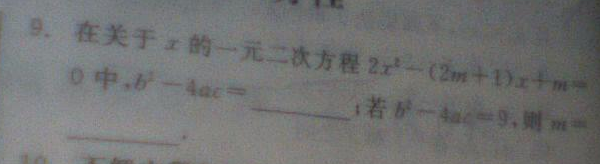 9. 在关于 x 的一元二次方程 2x²-(2m+1)x+m=
0 中,b²-4ac=________;若 b²-4ac=9,则 m=
________.